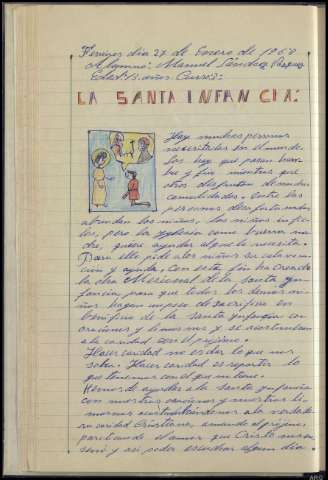 día 27 de Enero de 1968
Alumno: Manuel Sánchez
Edad 13 años. Curso:
LA SANTA INFANCIA:
Hay muchas personas
necesitadas en el mundo.
los hay que pasan ham-
bre y frio mientras que
otros disfrutan de muchas
comodidades. Entre las
personas desafortunadas
abundan los niños, los niños infie-
les, pero la Yglesia como buena ma-
dre, quiere ayudar al que lo necesita.
Para ello pide a los niños su colavora-
ción y ayuda, con este fin ha creado
la obra Misional de la santa yn-
fancia, para que todos los demas ni-
ños hagan un poco de sacrificio en
beneficio de la santa ynfancia con
oraciones y limosnas y se acostumbren
a la caridad con el projimo.
Hacer caridad no es dar lo que nos
sobra. Hacer caridad es repartir lo
que tenemos con el que no tiene.
Hemos de ayudar a la santa ynfancia
con nuestras oraciones y nuestras li-
mosnas acostumbrandonos a la verdade-
ra caridad Cristiana, amando al projimo,
practicando el amor que Cristo
y así poder escuchar algun dia.